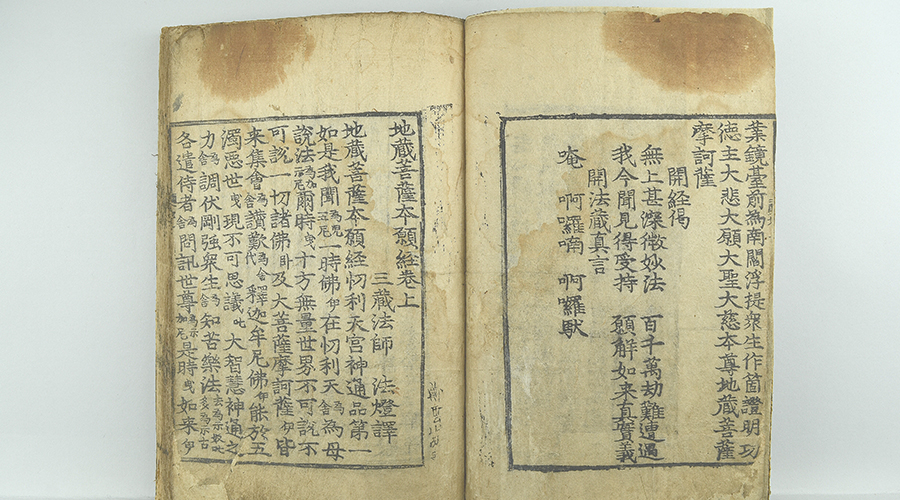 葉鏡臺前為南閻浮提衆生作箇證明功
德主大悲大願大聖大慈本尊地蔵菩薩
摩訶薩
開経偈
無上甚深微妙法　百千萬劫難遭遇
我今聞見得受持　願解如来真實義
開法蔵真言
唵　啊囉喃　啊囉馱
地蔵菩薩本願経卷上
三蔵法師　法燈譯
地蔵菩薩本願経忉利天宮神通品第一
如是我聞一時佛伊在忉利天為舍為母
說法爾時曳十方無量世界不可說不
可說一切諸佛卧及大菩薩摩訶薩伊皆
来集會為舍讃歎釋迦牟尼佛伊能於五
濁悪世曳現不可思議叱大智慧神通之
力為舍調伏剛强衆生為舍知苦樂法
各遣侍者為舍問訊世尊是時曳如来伊